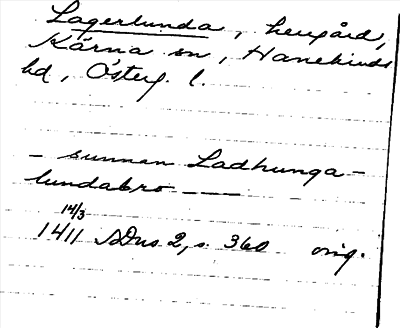 Lagerlunda, herrgård,
Kärna sn, Hanekinds
hd, Österg. l.
– sunnan Ladhunga-
lundabro ——
14/3
1411 SDns 2, s. 360 orig.